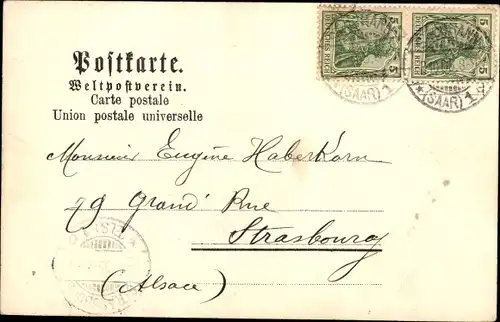 5 DEUTSCHES REICH 5
5 DEUTSCHES REICH 5
(SAAR) 1
(SAAR) 1
Postkarte.
Weltpostverein.
Carte postale
Union postale universelle
Monsieur Eugène Haberkorn
79 Grand' Rue
Strasbourg
(Alsace)